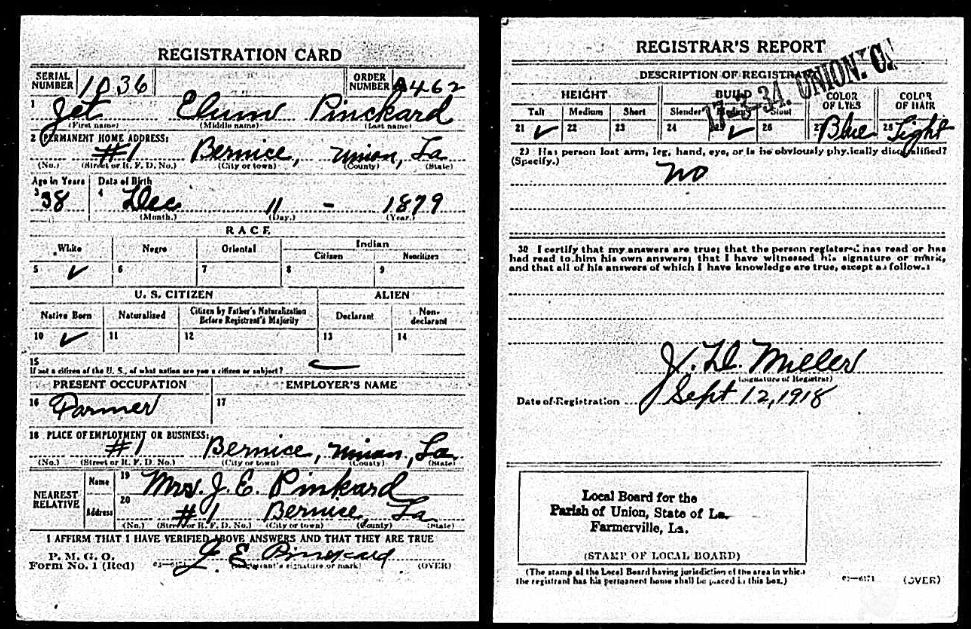 REGISTRATION CARD
SERIAL NUMBER 1036 ORDER NUMBER A462
1 Jet Elum Pinckard
(First name) (Middle name) (Last name)
2 PERMANENT HOME ADDRESS:
#1 Bernice, Union, La
(No.) (Street or R. F. D. No.) (City or town) (County) (State)
Age in Years Date of Birth
3 38 4 Dec 11 - 1879
(Month.) (Day.) (Year.)
RACE
White Negro Oriental Indian
Citizen Noncitizen
5 ✓ 6 7 8 9
U. S. CITIZEN ALIEN
Native Born Naturalized Citizen by Father's Naturalization Before Registrant's Majority Declarant Non-declarant
10 ✓ 11 12 13 14
15
If not a citizen of the U. S., of what nation are you a citizen or subject?
PRESENT OCCUPATION EMPLOYER'S NAME
16 Farmer 17
18 PLACE OF EMPLOYMENT OR BUSINESS:
#1 Bernice, Union, La
(No.) (Street or R. F. D. No.) (City or town) (County) (State)
NEAREST RELATIVE
Name 19 Mrs. J. E. Pinkard
Address 20 #1 Bernice, La
(No.) (Street or R. F. D. No.) (City or town) (County) (State)
I AFFIRM THAT I HAVE VERIFIED ABOVE ANSWERS AND THAT THEY ARE TRUE
P. M. G. O.
Form No. 1 (Red) J E Pinckard
(Registrant's signature or mark) (OVER)
REGISTRAR'S REPORT
17-3-34. UNION. C.
DESCRIPTION OF REGISTRANT
HEIGHT BUILD COLOR OF EYES COLOR OF HAIR
Tall Medium Short Slender Medium Stout
21 ✓ 22 23 24 25 ✓ 26 27 Blue 28 Light
29 Has person lost arm, leg, hand, eye, or is he obviously physically disqualified?
(Specify.)
No
30 I certify that my answers are true; that the person registered has read or has
had read to him his own answers; that I have witnessed his signature or mark,
and that all of his answers of which I have knowledge are true, except as follows:
J. D. Miller
(Signature of Registrar)
Date of Registration Sept 12, 1918
Local Board for the
Parish of Union, State of La.
Farmerville, La.
(STAMP OF LOCAL BOARD)
(The stamp of the Local Board having jurisdiction of the area in which
the registrant has his permanent home shall be placed in this box.)
03—6171 (OVER)